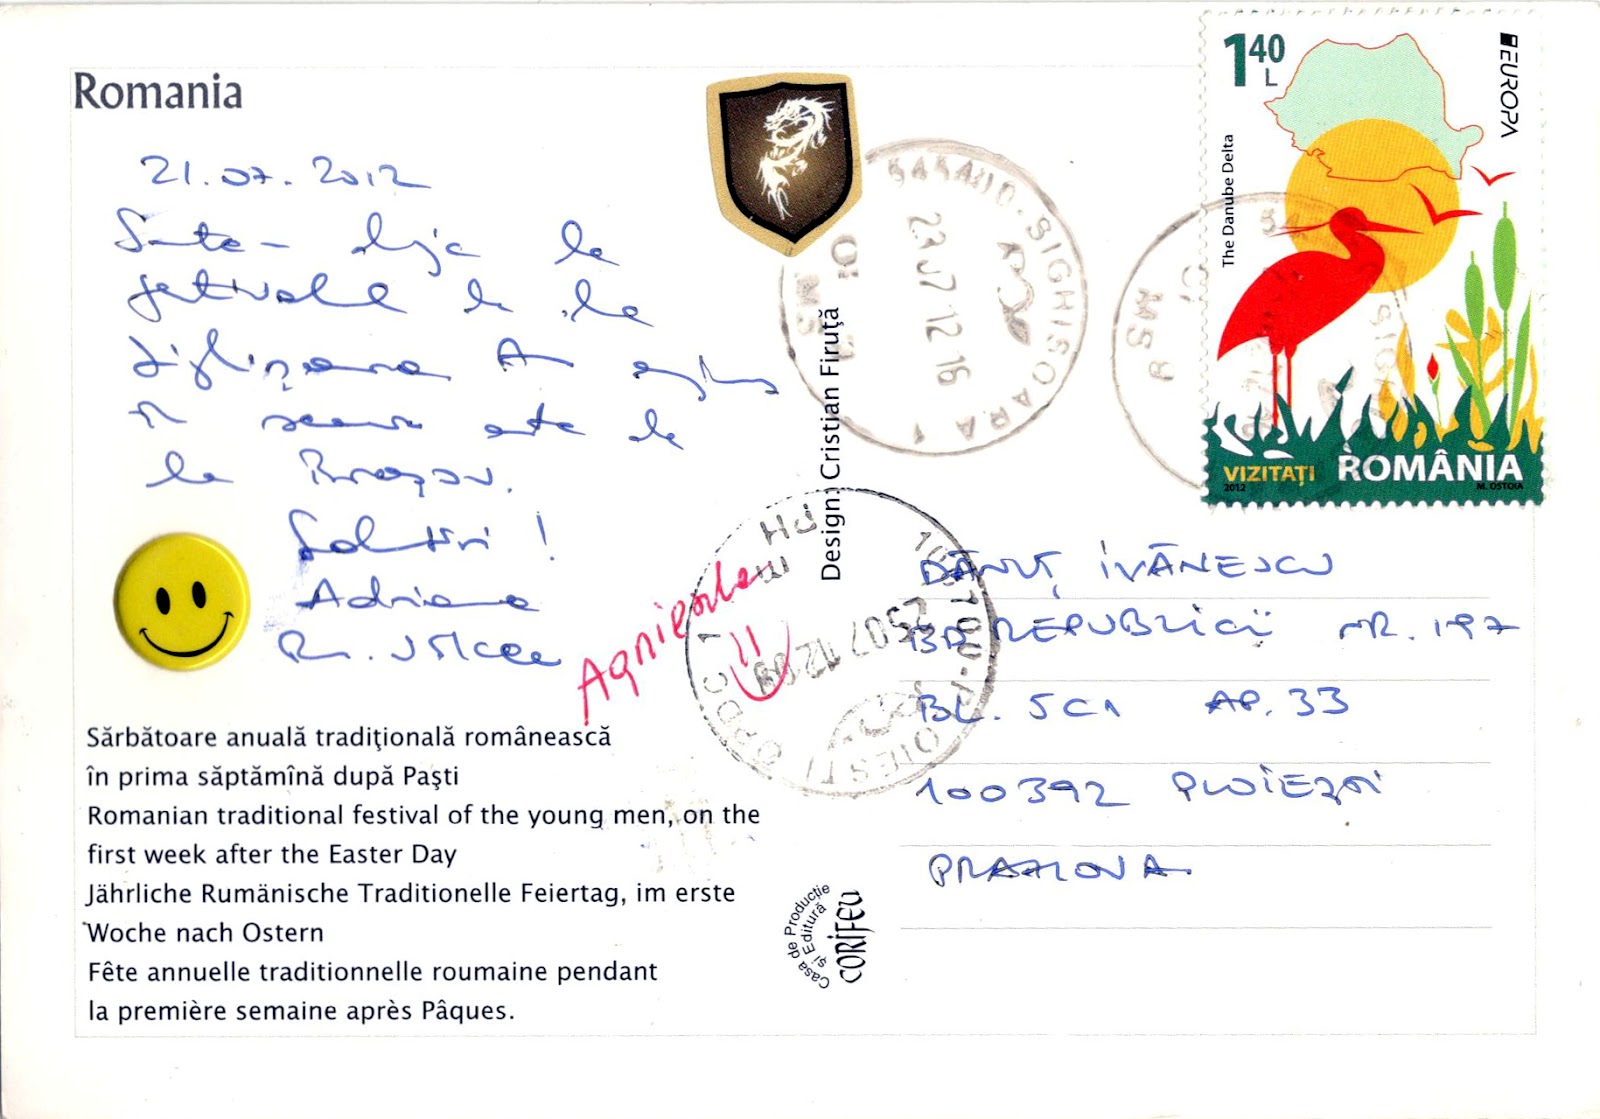 Romania
21.07.2012
deja la
festivalul de la
Sighișoara
este de
la Brașov.
Salutări !
Adriana
Rm. Vâlcea
Agnieszka
Sărbătoare anuală tradiţională românească
în prima săptămînă după Paşti
Romanian traditional festival of the young men, on the
first week after the Easter Day
Jährliche Rumänische Traditionelle Feiertag, im erste
Woche nach Ostern
Fête annuelle traditionnelle roumaine pendant
la première semaine après Pâques.
Design: Cristian Firuţă
Casa de Producţie
şi Editură
CORIFEU
545400-SIGHISOARA 1
23.07 12 16
MS
1.40 L
EUROPA
The Danube Delta
VIZITAȚI ROMÂNIA
2012
M. OSTOIA
PH
25 07 12
PLOIESTI
DĂNUȚ IVĂNESCU
BD REPUBLICII NR. 197
BL. 5C1 AP. 33
100392 PLOIEȘTI
PRAHOVA